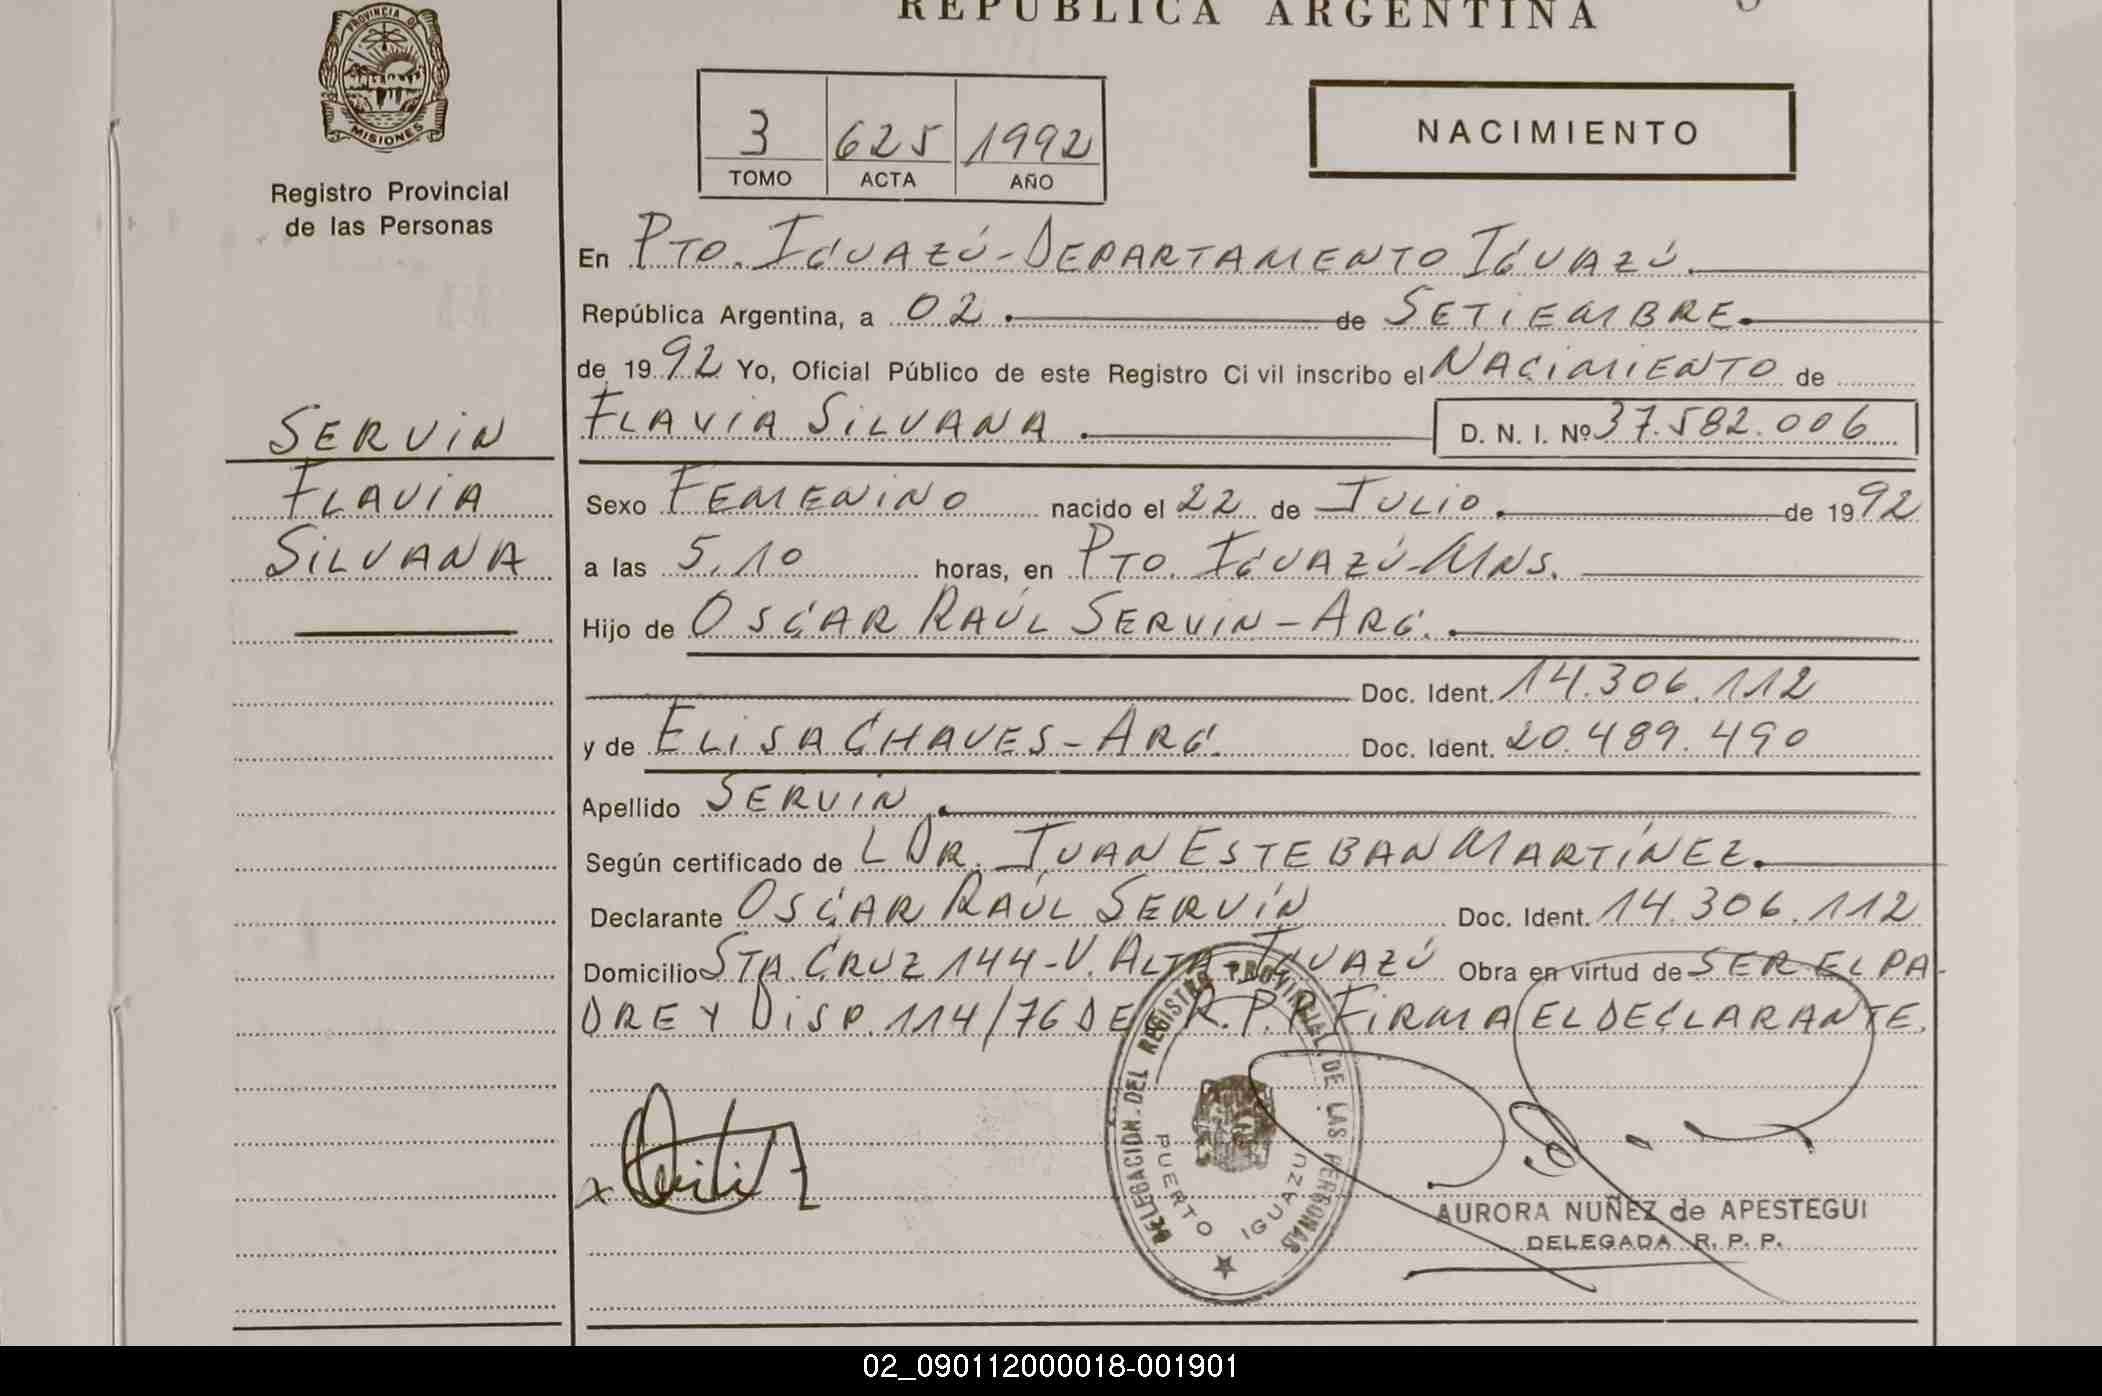 REPUBLICA ARGENTINA
PROVINCIA DE
MISIONES
Registro Provincial
de las Personas
3 625 1992
TOMO ACTA AÑO
NACIMIENTO
En PTO. IGUAZÚ-DEPARTAMENTO IGUAZÚ.
República Argentina, a 02. de SETIEMBRE.
de 1992 Yo, Oficial Público de este Registro Civil inscribo el NACIMIENTO de
SERVIN
FLAVIA SILVANA. D. N. I. Nº 37.582.006
FLAVIA
Sexo FEMENINO nacido el 22 de JULIO. de 1992
SILVANA
a las 5,10 horas, en PTO. IGUAZÚ-MNS.
Hijo de OSCAR RAÚL SERVIN-ARG.
Doc. Ident. 14.306.112
y de ELISA CHAVES-ARG. Doc. Ident. 20.489.490
Apellido SERVIN.
Según certificado de L DR. JUAN ESTEBAN MARTÍNEZ.
Declarante OSCAR RAÚL SERVÍN Doc. Ident. 14.306.112
Domicilio STA. CRUZ 144-V. ALTA IGUAZÚ Obra en virtud de SER EL PA-
DRE Y DISP. 114/76 DE R.P.P. FIRMA EL DECLARANTE.
DELEGACION DEL REGISTRO PROVINCIAL DE LAS PERSONAS
PUERTO IGUAZU
AURORA NUÑEZ de APESTEGUI
DELEGADA R. P. P.
02_090112000018-001901